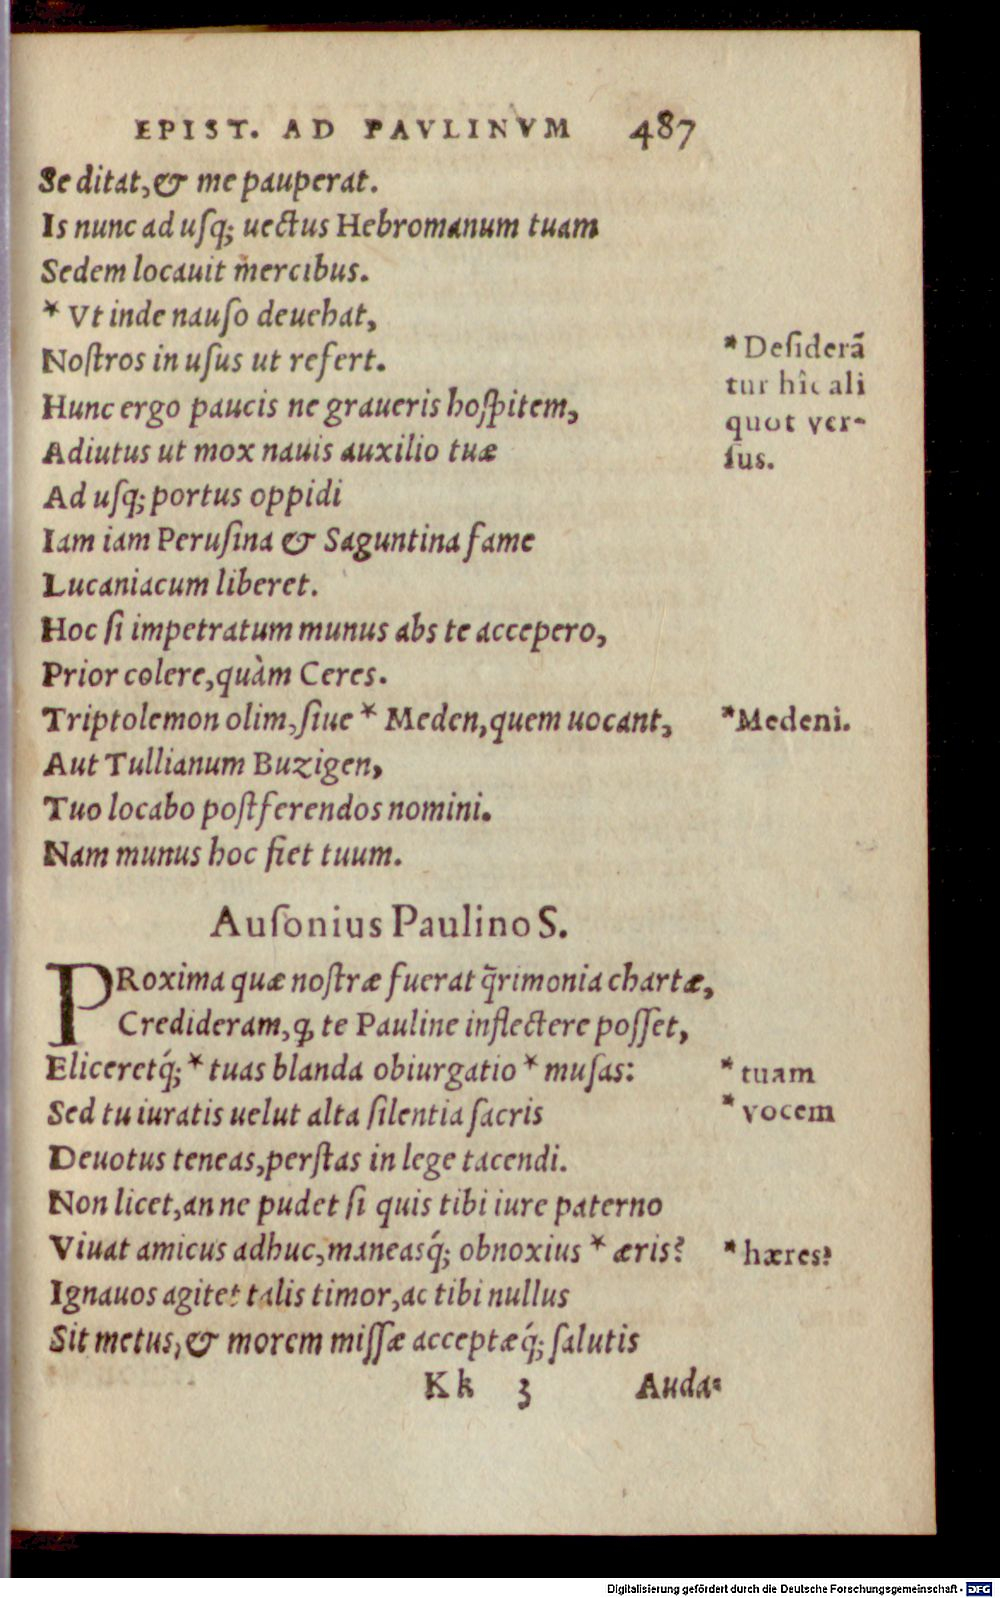 EPIST. AD PAVLINVM 487
Se ditat, & me pauperat.
Is nunc ad uſq; uectus Hebromanum tuam
Sedem locauit mercibus.
* Vt inde nauſo deuehat,
Noſtros in uſus ut refert.
* Deſiderã
tur hîc ali
quot ver-
ſus.
Hunc ergo paucis ne graueris hoſpitem,
Adiutus ut mox nauis auxilio tuæ
Ad uſq; portus oppidi
Iam iam Peruſina & Saguntina fame
Lucaniacum liberet.
Hoc ſi impetratum munus abs te accepero,
Prior colere, quàm Ceres.
Triptolemon olim, ſiue * Meden, quem uocant,
* Medeni.
Aut Tullianum Buzigen,
Tuo locabo poſtferendos nomini.
Nam munus hoc fiet tuum.
Auſonius Paulino S.
PRoxima quæ noſtræ fuerat q̃rimonia chartæ,
Credideram, ꝙ te Pauline inflectere poſſet,
Eliceretq́; * tuas blanda obiurgatio * muſas:
* tuam
Sed tu iuratis uelut alta ſilentia ſacris
* vocem
Deuotus teneas, perſtas in lege tacendi.
Non licet, an ne pudet ſi quis tibi iure paterno
Viuat amicus adhuc, maneasq́; obnoxius * æris?
* hæres?
Ignauos agitet talis timor, ac tibi nullus
Sit metus, & morem miſſæ acceptæq́; ſalutis
Kk 3 Auda-
Digitalisierung gefördert durch die Deutsche Forschungsgemeinschaft - DFG